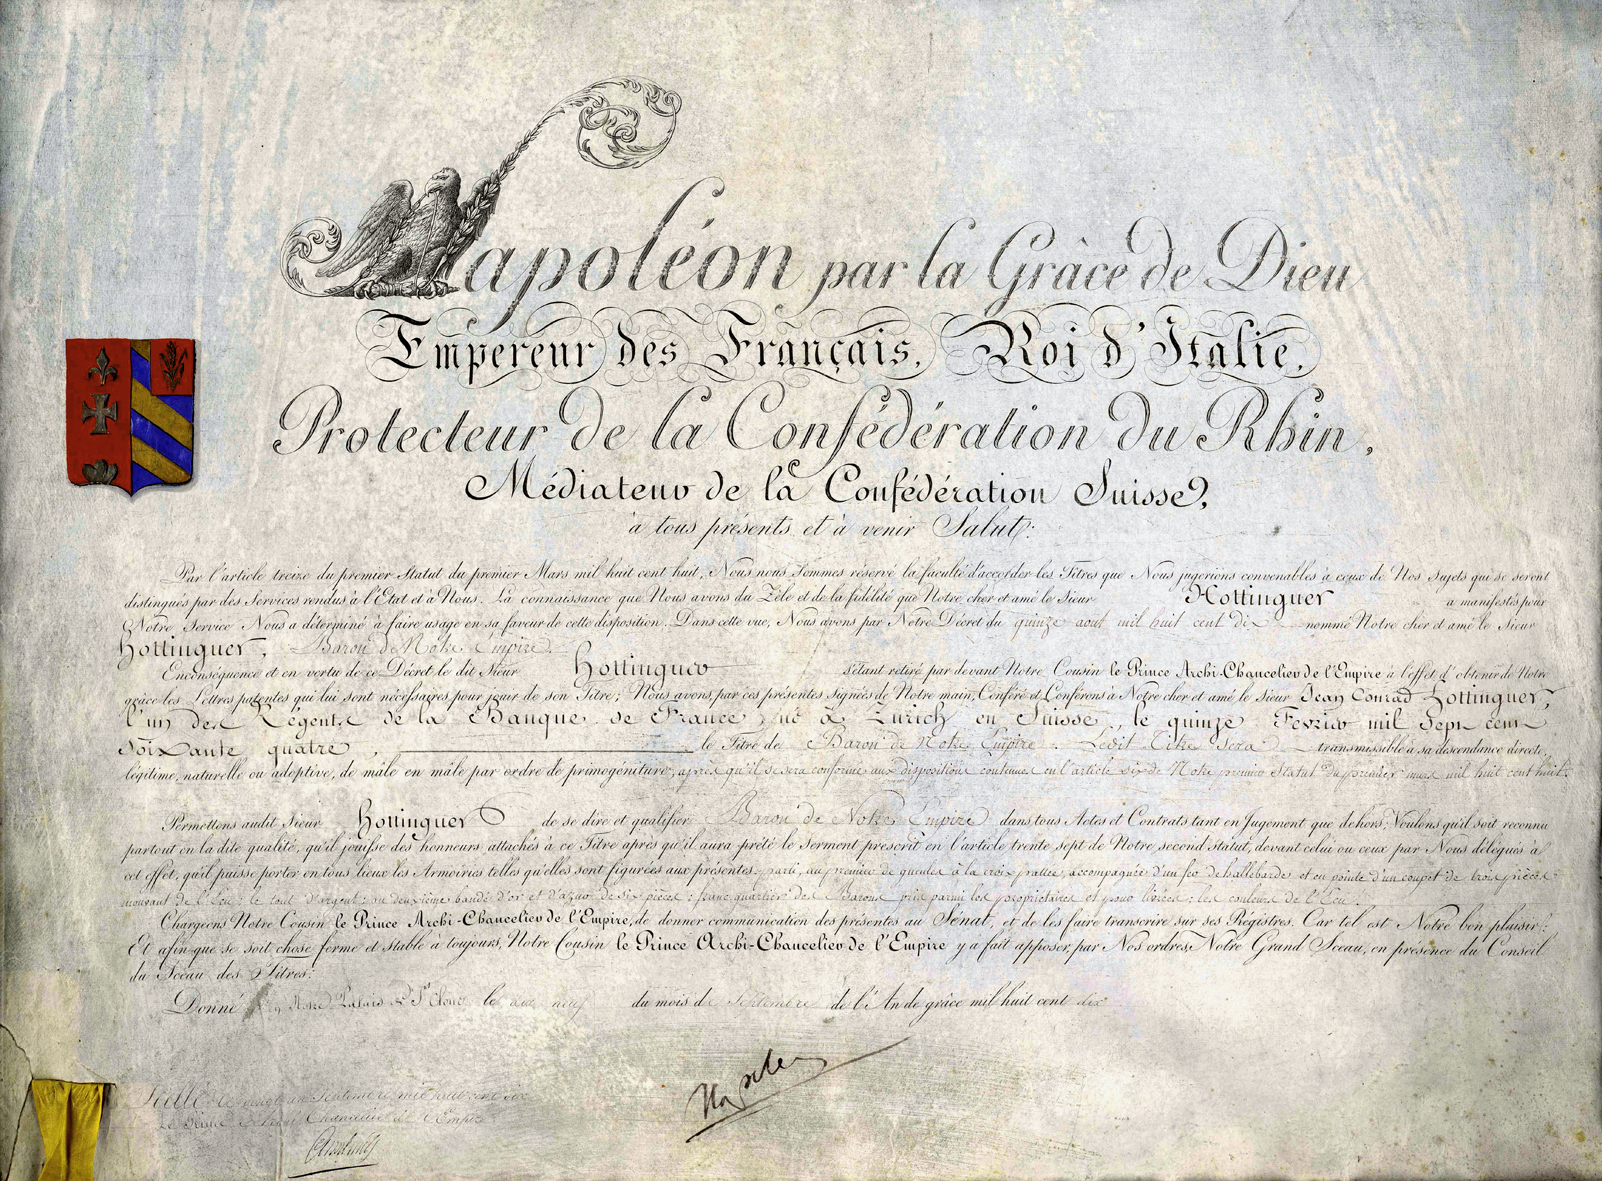 Napoléon par la Grâce de Dieu
Empereur des Français, Roi d'Italie,
Protecteur de la Confédération du Rhin,
Médiateur de la Confédération Suisse,
à tous présents et à venir Salut:
Par l'article treize du premier Statut du premier Mars mil huit cent huit, Nous nous sommes réservé la faculté d'accorder les Titres que Nous jugerions convenables à ceux de Nos Sujets qui se seront
distingués par des Services rendus à l'Etat et à Nous. La connaissance que Nous avons du Zèle et de la fidélité que Notre cher et amé le Sieur Hottinguer a manifestés pour
Notre Service Nous a déterminé à faire usage en sa faveur de cette disposition. Dans cette vue, Nous avons par Notre Décret du quinze aout mil huit cent dix nommé Notre cher et amé le Sieur
Hottinguer, Baron de Notre Empire.
Enconséquence et en vertu de ce Décret le dit Sieur Hottinguer s'étant retiré par devant Notre Cousin le Prince Archi-Chancelier de l'Empire à l'effet d'obtenir de Notre
grâce les Lettres patentes qui lui sont nécessaires pour jouir de son Titre; Nous avons, par ces présentes Signées de Notre main, Conféré et Conférons à Notre cher et amé le Sieur Jean Conrad Hottinguer,
l'un des Régents de la Banque de France né à Zurich en Suisse, le quinze Fevrier mil Sept cent
Soixante quatre, le Titre de Baron de Notre Empire. Ledit Titre sera transmissible à sa descendance directe,
légitime, naturelle ou adoptive, de mâle en mâle par ordre de primogéniture, après qu'il se sera conformé aux dispositions contenues en l'article six de Notre premier Statut du premier mars mil huit cent huit.
Permettons audit Sieur Hottinguer de se dire et qualifier Baron de Notre Empire dans tous Actes et Contrats tant en Jugement que dehors, Voulons qu'il soit reconnu
partout en la dite qualité, qu'il jouisse des honneurs attachés à ce Titre après qu'il aura prêté le Serment prescrit en l'article trente sept de Notre second statut, devant celui ou ceux par Nous délégués à
cet effet, qu'il puisse porter en tous lieux les Armoiries telles qu'elles sont figurées aux présentes. parti, au premier de gueules à la croix patée, accompagnée d'un fer de hallebarde et en pointe d'un coupet de trois pièces
mouvant de l'Ecu; le tout d'argent; au deuxième bandé d'or et d'azur de six pièces; franc quartier des Barons pris parmi les propriétaires et pour livrées: les couleurs de l'Ecu.
Chargeons Notre Cousin le Prince Archi-Chancelier de l'Empire, de donner communication des présentes au Sénat, et de les faire transcrire sur ses Régistres. Car tel est Notre bon plaisir:
Et afin que se soit chose ferme et stable à toujours, Notre Cousin le Prince Archi-Chancelier de l'Empire y a fait apposer, par Nos ordres, Notre Grand Sceau, en présence du Conseil
du Sceau des Titres:
Donné en Notre Palais de St Cloud le dix neuf du mois de Septembre de l'An de grâce mil huit cent dix
Scellé le vingt un Septembre mil huit cent dix
Le Prince Archi Chancelier de l'Empire